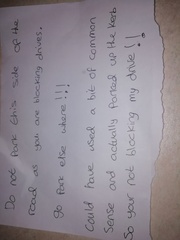 Do not Park this side of the
road as you are blocking drives.
go Park else where!!!
Could have used a bit of common
Sense and actually Parked up the kerb
So your not blocking my drive!!